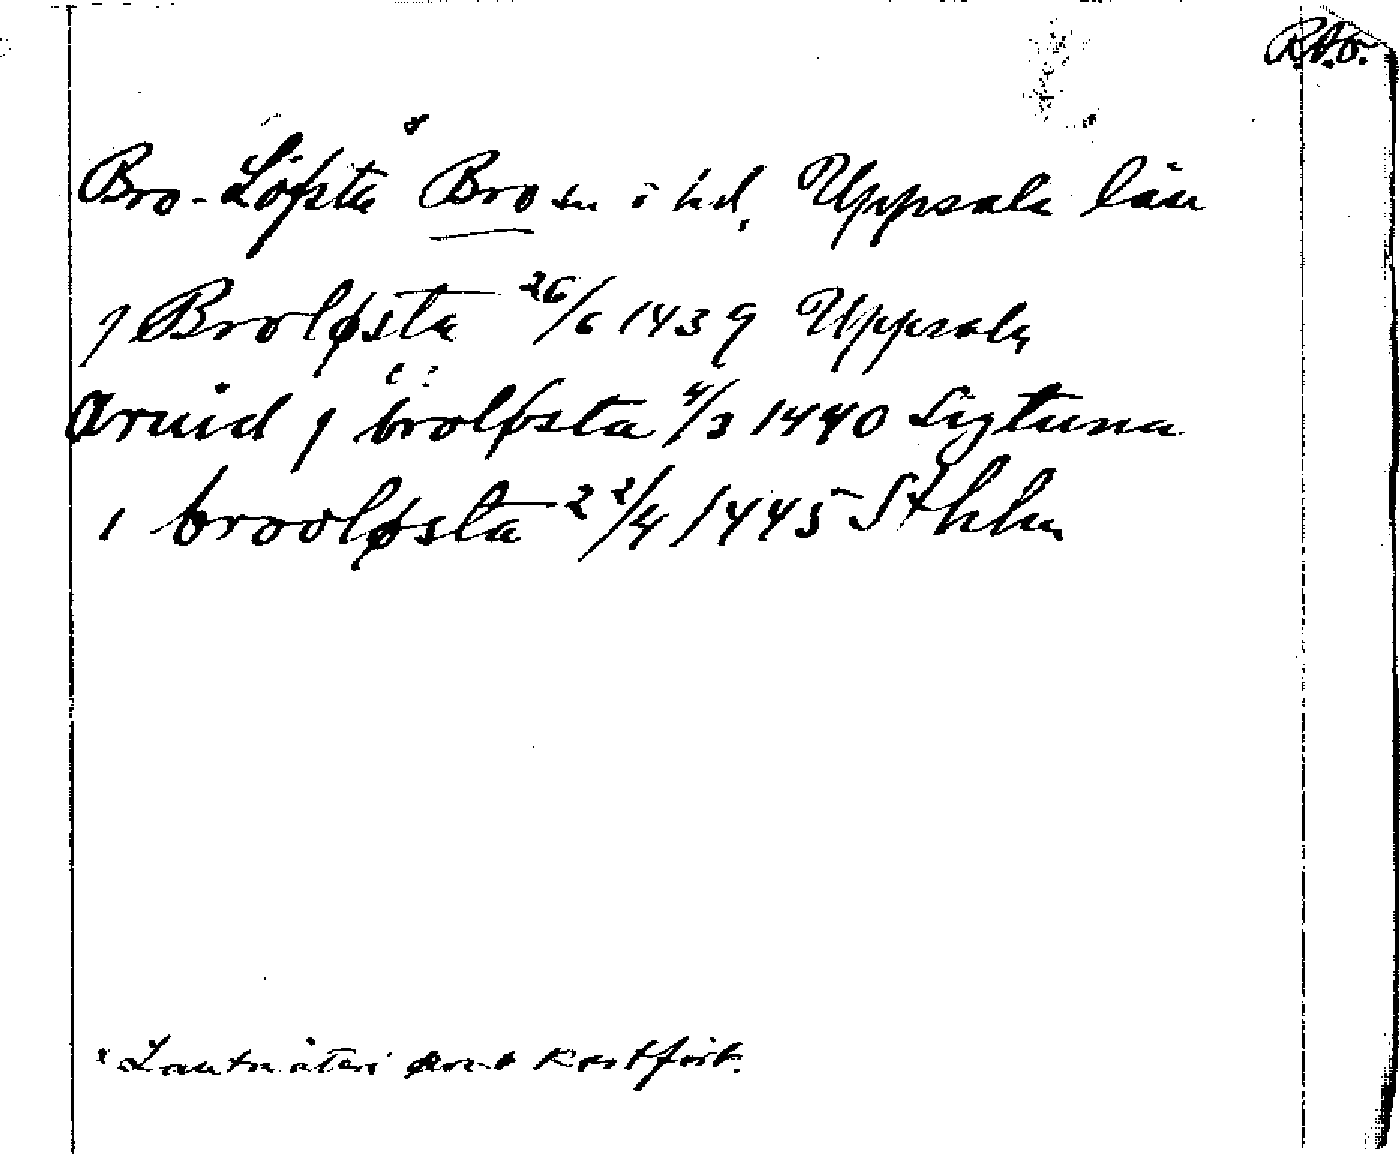 R.A.O.
Bro-Löfsta * Bro sn o hd, Uppsala län
j Broløsta 26/6 1439 Uppsala
Arvid j broløsta 4/3 1440 Sigtuna
i brooløsta 22/4 1445 Sthlm
* Lantmäteri kartfört.